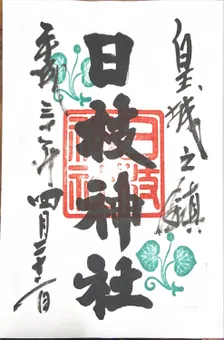 皇城之鎮
日枝神社
日枝神社
平成三十一年四月二十六日